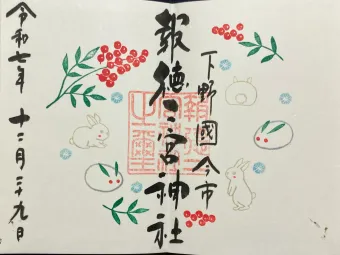 下野國今市
報徳二宮神社
令和七年 十二月二十九日